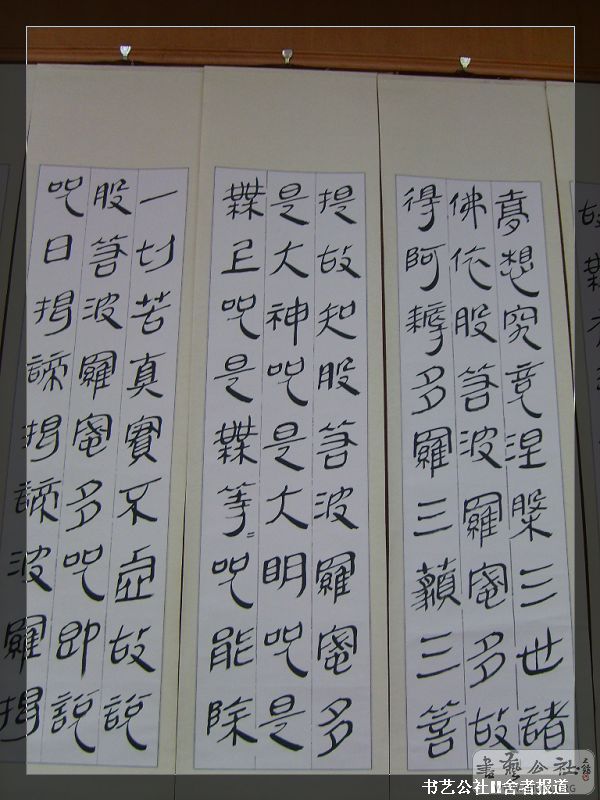 故無
夢想究竟涅槃三世諸
佛依般若波羅蜜多故
得阿耨多羅三藐三菩
提故知般若波羅蜜多
是大神咒是大明咒是
無上咒是無等=咒能除
一切苦真實不虛故說
般若波羅蜜多咒即說
咒曰揭諦揭諦波羅揭
書藝公社
书艺公社II舍者报道